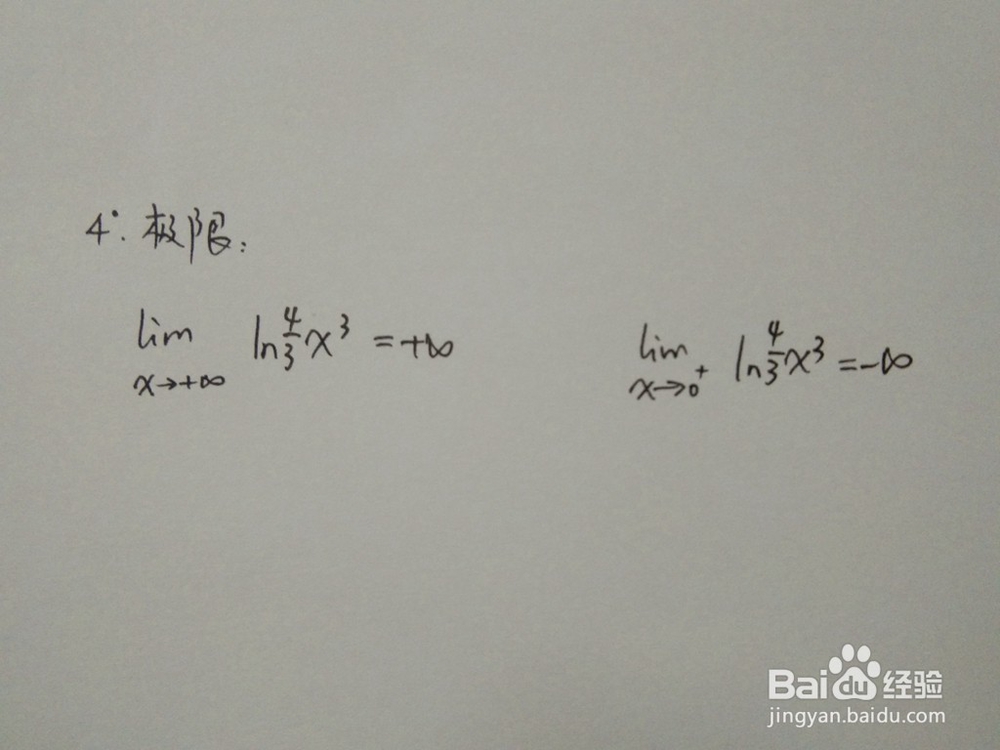 4°. 极限:
lim x→+∞ ln 4/3 x³ = +∞
lim x→0⁺ ln 4/3 x³ = -∞
Baidu 经验
jingyan.baidu.com